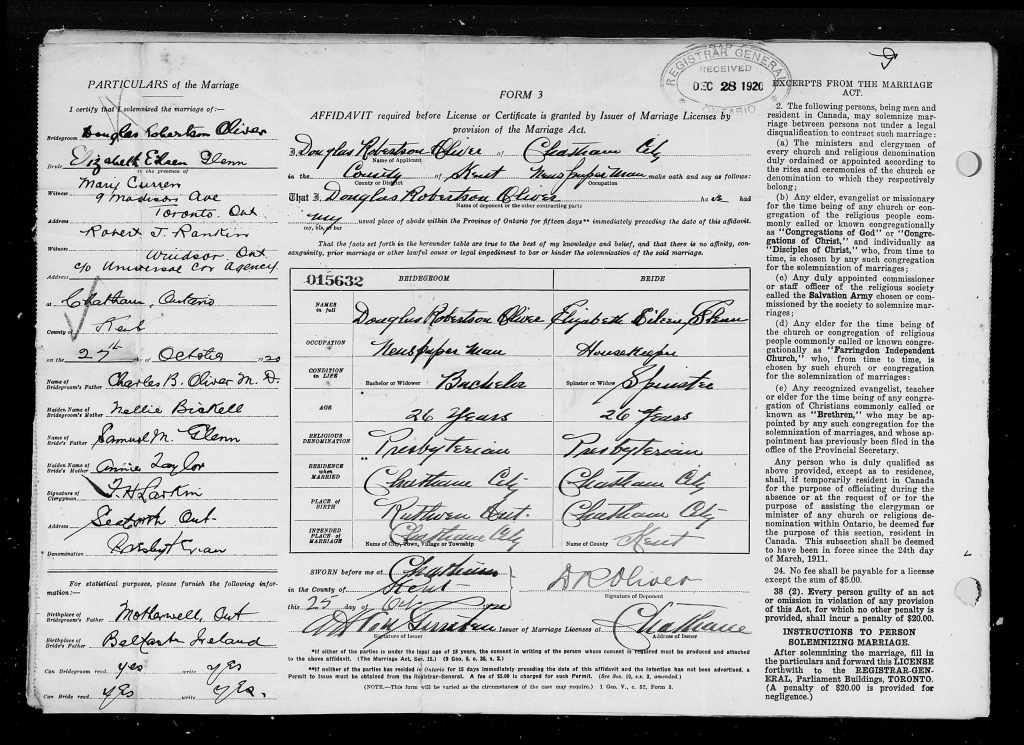 PARTICULARS of the Marriage
I certify that I solemnized the marriage of:—
Bridegroom Douglas Robertson Oliver
Bride Elizabeth Eileen Glenn
in the presence of
Witness Mary Curren
9 Madison Ave
Address Toronto. Ont.
Robert J. Rankin
Witness
Windsor. Ont
Address c/o Universal Car Agency.
at Chatham, Ontario
County of Kent
on the 27th day of October 1920
Name of Bridegroom's Father Charles B. Oliver M. D.
Maiden Name of Bridegroom's Mother Nellie Bickell
Name of Bride's Father Samuel M. Glenn
Maiden Name of Bride's Mother Annie Taylor
Signature of Clergyman F. H. Larkin
Address Seaforth Ont.
Denomination Presbyterian
For statistical purposes, please furnish the following information:—
Birthplace of Bridegroom's Father Motherwell, Ont
Birthplace of Bride's Father Belfast Ireland
Can Bridegroom read yes write yes
Can Bride read yes write yes.
FORM 3
AFFIDAVIT required before License or Certificate is granted by Issuer of Marriage Licenses by
provision of the Marriage Act.
I, Douglas Robertson Oliver of Chatham City
Name of Applicant
in the County of Kent Newspaper Man make oath and say as follows:
County or District Occupation
That I Douglas Robertson Oliver have had
Name of deponent or the other contracting party
my usual place of abode within the Province of Ontario for fifteen days** immediately preceding the date of this affidavit.
my, his, or her
That the facts set forth in the hereunder table are true to the best of my knowledge and belief, and that there is no affinity, consanguinity, prior marriage or other lawful cause or legal impediment to bar or hinder the solemnization of the said marriage.
015632 BRIDEGROOM BRIDE
NAMES in full Douglas Robertson Oliver Elizabeth Eileen Glenn
OCCUPATION Newspaper Man Housekeeper
CONDITION IN LIFE Bachelor or Widower Bachelor Spinster or Widow Spinster
AGE 26 Years 26 Years
RELIGIOUS DENOMINATION Presbyterian Presbyterian
RESIDENCE when MARRIED Chatham City Chatham City
PLACE OF BIRTH Ruthven Ont. Chatham City
INTENDED PLACE OF MARRIAGE Chatham City Kent
Name of City, Town, Village or Township Name of County
SWORN before me at Chatham
in the County of Kent
this 25 day of Oct 1920
D R Oliver
Signature of Deponent
Issuer of Marriage Licenses at Chatham
Address of Issuer
*If either of the parties is under the legal age of 18 years, the consent in writing of the person whose consent is required must be produced and attached
to the above affidavit. (The Marriage Act, Sec. 15.)
**If neither of the parties has resided in Ontario for 15 days immediately preceding the date of this affidavit and the intention has not been advertised, a
Permit to Issue must be obtained from the Registrar-General. A fee of $5.00 is charged for such Permit.
(NOTE.—This form will be varied as the circumstances of the case may require.) 1 Geo. V., c. 32, Form 3.
REGISTRAR GENERAL
RECEIVED
DEC 28 1920
ONTARIO
EXCERPTS FROM THE MARRIAGE
ACT.
2. The following persons, being men and
resident in Canada, may solemnize marriage between persons not under a legal
disqualification to contract such marriage:
(a) The ministers and clergymen of
every church and religious denomination
duly ordained or appointed according to
the rites and ceremonies of the church or
denomination to which they respectively
belong;
(b) Any elder, evangelist or missionary
for the time being of any church or congregation of the religious people commonly called or known congregationally
as "Congregations of God" or "Congregations of Christ," and individually as
"Disciples of Christ," who, from time to
time, is chosen by any such congregation
for the solemnization of marriages;
(c) Any duly appointed commissioner
or staff officer of the religious society
called the Salvation Army chosen or commissioned by the society to solemnize marriages;
(d) Any elder for the time being
of the church or congregation of religious
people commonly called or known congregationally as "Farringdon Independent
Church," who, from time to time, is
chosen by such church or congregation
for the solemnization of marriages:
(e) Any recognized evangelist, teacher
or elder for the time being of any congregation of Christians commonly called or
known as "Brethren," who may be
appointed by any such congregation for the
solemnization of marriages, and whose
appointment has previously been filed in the
office of the Provincial Secretary.
Any person who is duly qualified as
above provided, except as to residence,
shall, if temporarily resident in Canada
for the purpose of officiating during the
absence or at the request of or for the
purpose of assisting the clergyman or
minister of any church or religious denomination within Ontario, be deemed for
the purpose of this section, resident in
Canada. This subsection shall be deemed
to have been in force since the 24th day
of March, 1911.
24. No fee shall be payable for a license
except the sum of $5.00.
38 (2). Every person guilty of an act
or omission in violation of any provision
of this Act, for which no other penalty is
provided, shall incur a penalty of $20.00.
INSTRUCTIONS TO PERSON
SOLEMNIZING MARRIAGE.
After solemnizing the marriage, fill in
the particulars and forward this LICENSE
forthwith to the REGISTRAR-GENERAL, Parliament Buildings, TORONTO.
(A penalty of $20.00 is provided for
negligence.)